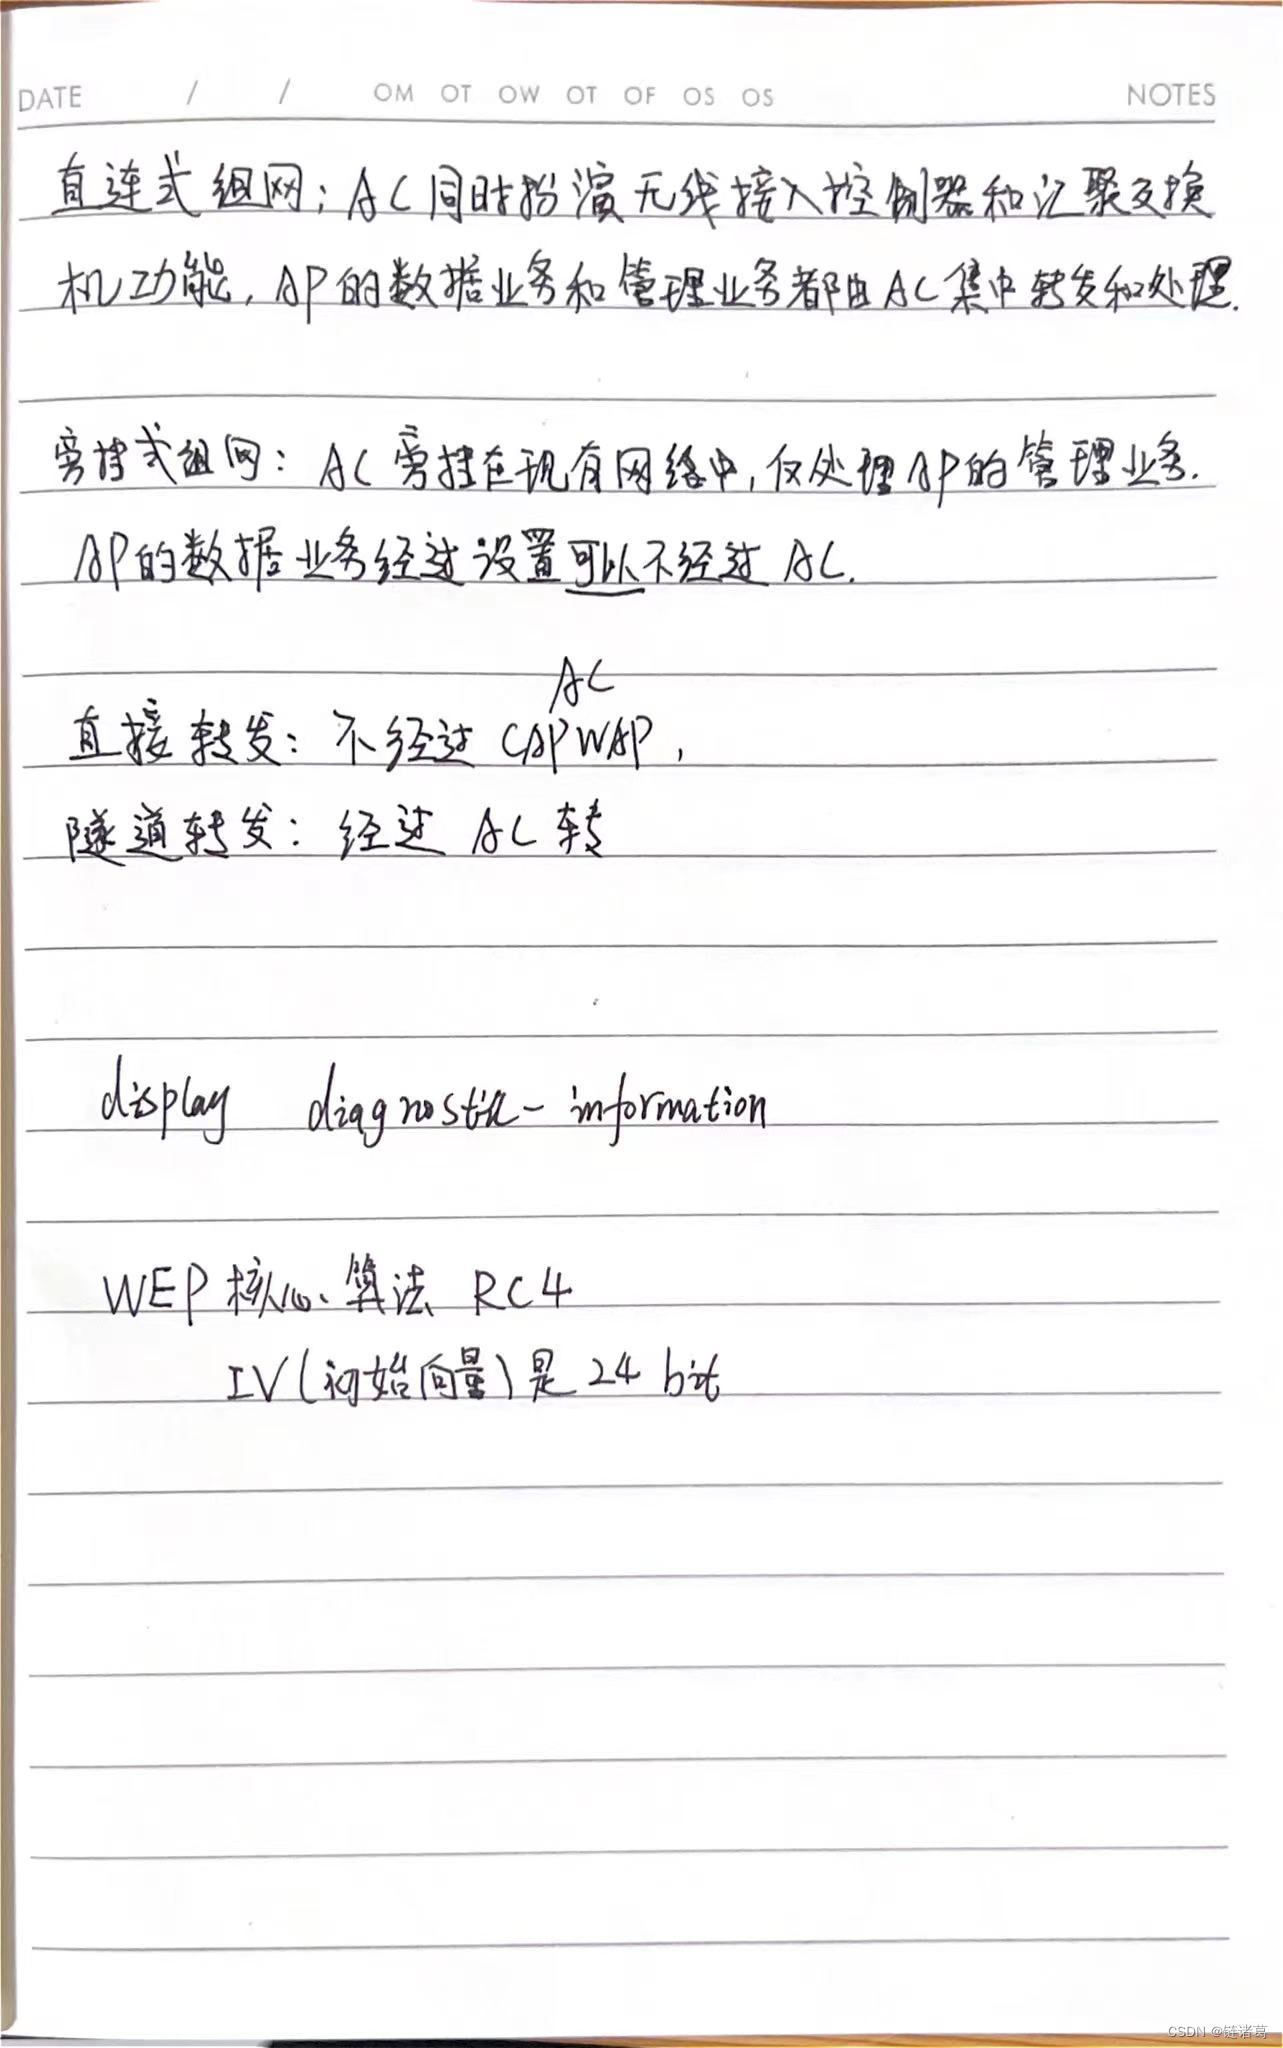 DATE / / OM OT OW OT OF OS OS NOTES
直连式组网：AC同时扮演无线接入控制器和汇聚交换
机功能，AP的数据业务和管理业务都由AC集中转发和处理.
旁挂式组网：AC旁挂在现有网络中，仅处理AP的管理业务.
AP的数据业务经过设置可以不经过AC.
AC
直接转发：不经过CAPWAP，
隧道转发：经过AC转
display diagnostic-information
WEP核心算法 RC4
IV(初始向量)是24 bit
CSDN @链诸葛